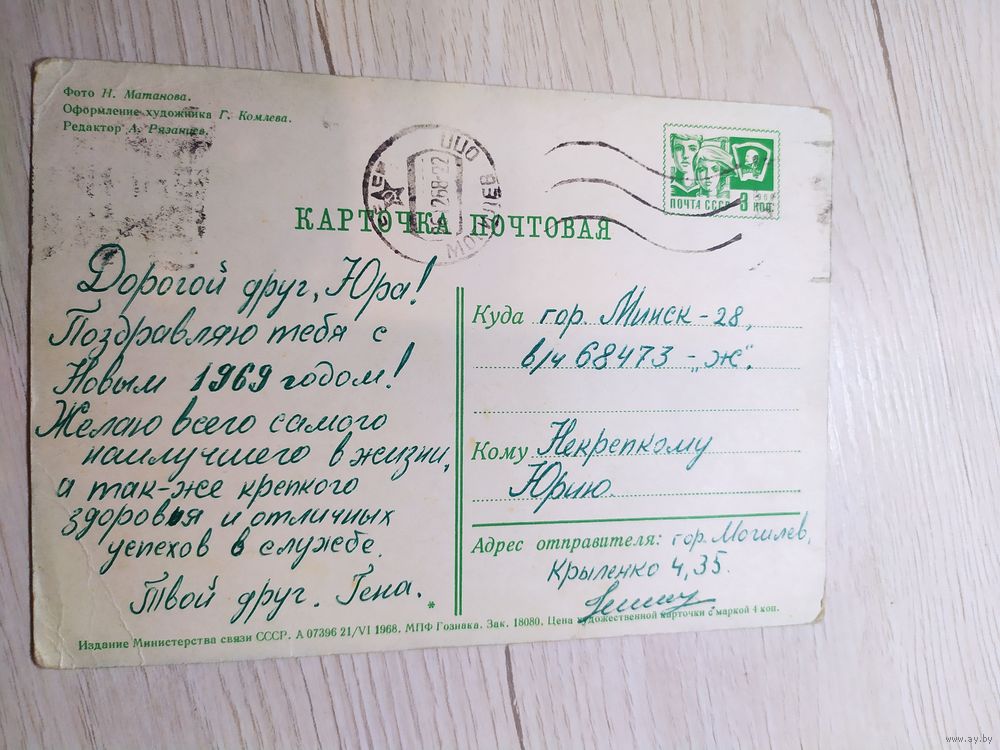 Фото Н. Матанова.
Оформление художника Г. Комлева.
Редактор А. Рязанцев.
ЦПО
МОГИЛЕВ
268-22
ПОЧТА СССР 3 коп
КАРТОЧКА ПОЧТОВАЯ
Дорогой друг, Юра!
Поздравляю тебя с
Новым 1969 годом!
Желаю всего самого
наилучшего в жизни,
а так-же крепкого
здоровья и отличных
успехов в службе.
Твой друг. Гена.
*
Куда гор. Минск-28,
в/ч 68473-„ж".
Кому Некрепкому
Юрию.
Адрес отправителя: гор. Могилев,
Крыленко 4, 35.
Издание Министерства связи СССР. А 07396 21/VI 1968. МПФ Гознака. Зак. 18080. Цена художественной карточки с маркой 4 коп.
www.ay.by